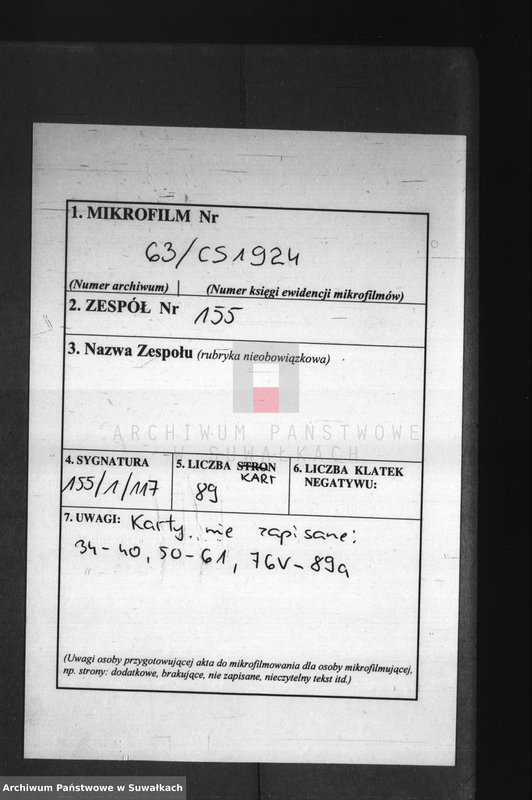 1. MIKROFILM Nr
63/CS1924
(Numer archiwum) (Numer księgi ewidencji mikrofilmów)
2. ZESPÓŁ Nr 155
3. Nazwa Zespołu (rubryka nieobowiązkowa)
ARCHIWUM PAŃSTWOWE
W SUWAŁKACH
4. SYGNATURA
155/1/117
5. LICZBA STRON
KART
89
6. LICZBA KLATEK
NEGATYWU:
7. UWAGI: Karty nie zapisane:
34-40, 50-61, 76V-89a
(Uwagi osoby przygotowującej akta do mikrofilmowania dla osoby mikrofilmującej,
np. strony: dodatkowe, brakujące, nie zapisane, nieczytelny tekst itd.)
Archiwum Państwowe w Suwałkach